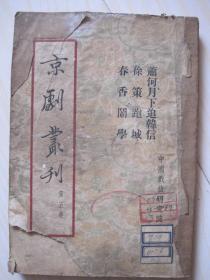 蕭何月下追韓信
徐策跑城
春香鬧學
京劇叢刊
中國戲曲研究院